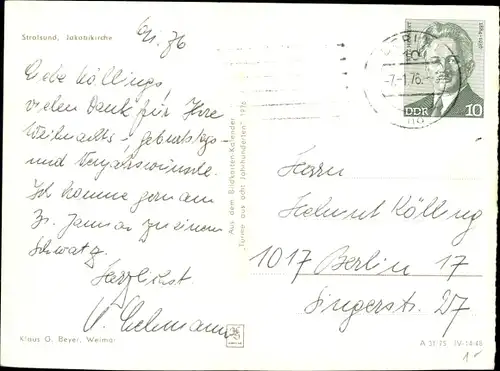 Stralsund, Jakobikirche
6/1. 76
Liebe Köllings,
vielen Dank für Ihre
Weihnachts-, Geburtstags-
und Neujahrswünsche.
Ich komme gern am
31. Januar zu einem
Schwatz.
Herzlichst
Klaus G. Beyer, Weimar
Aus dem Bildkarten-Kalender
"Türme aus acht Jahrhunderten" 1976
-7.-1.76.
DDR 10
Herrn
Helmut Kölling
1017 Berlin 17
Singerstr. 27
A 31/75 IV-14-48